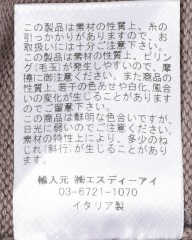 この製品は素材の性質上、糸の
引っかかりがありますので、お
取扱いには十分ご注意下さい。
この製品は素材の性質上、ピリン
グ(毛玉)が発生しやすいので、摩
擦に御注意ください。また商品の
性質上、若干の色あせや白化、風合
いの変化が生じることがあります
のでご留意下さい。
この商品は鮮明な色合いですが、
日光に弱いのでご注意ください。
素材の特性により、多少のね
じれ(斜行)が生じることがあり
ます。
輸入元 ㈱エスディーアイ
03-6721-1070
イタリア製